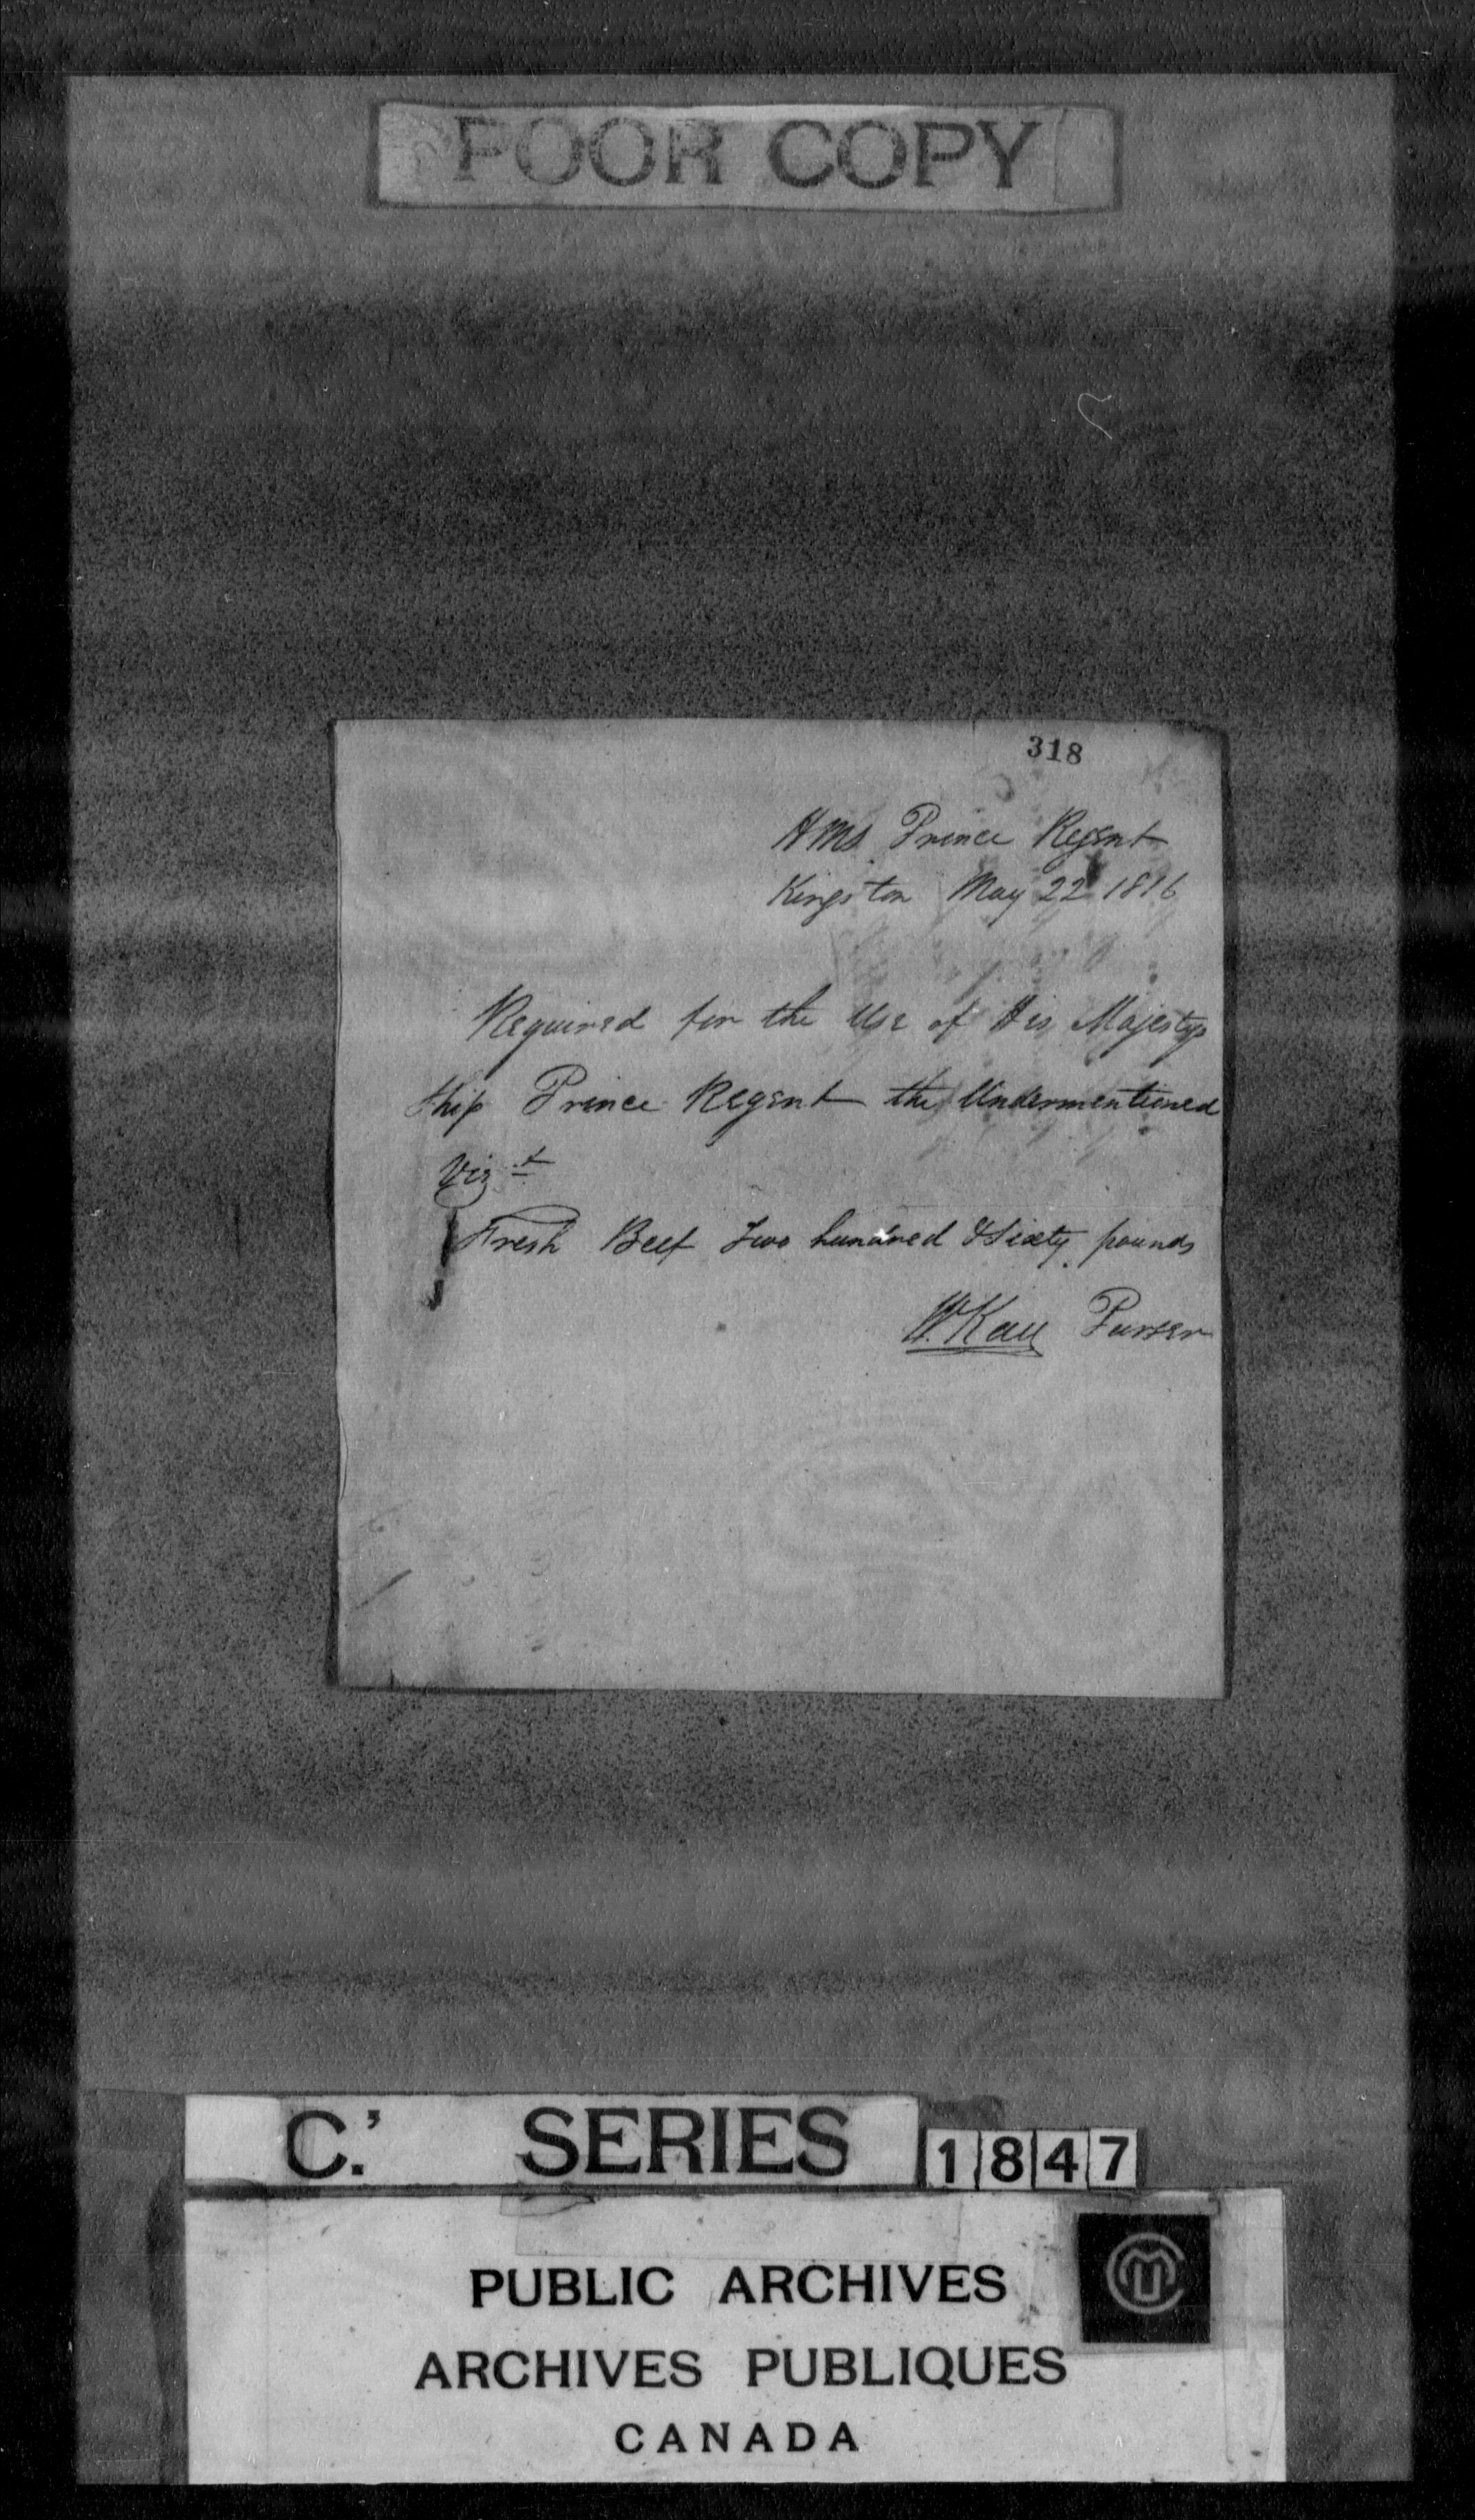 POOR COPY
318
HMS Prince Regent
Kingston May 22 1816
Required for the Use of His Majestys
Ship Prince Regent the Undermentioned
Vizt
Fresh Beef Two hundred & Sixty pounds
Purser
C.' SERIES 1847
PUBLIC ARCHIVES
ARCHIVES PUBLIQUES
CANADA